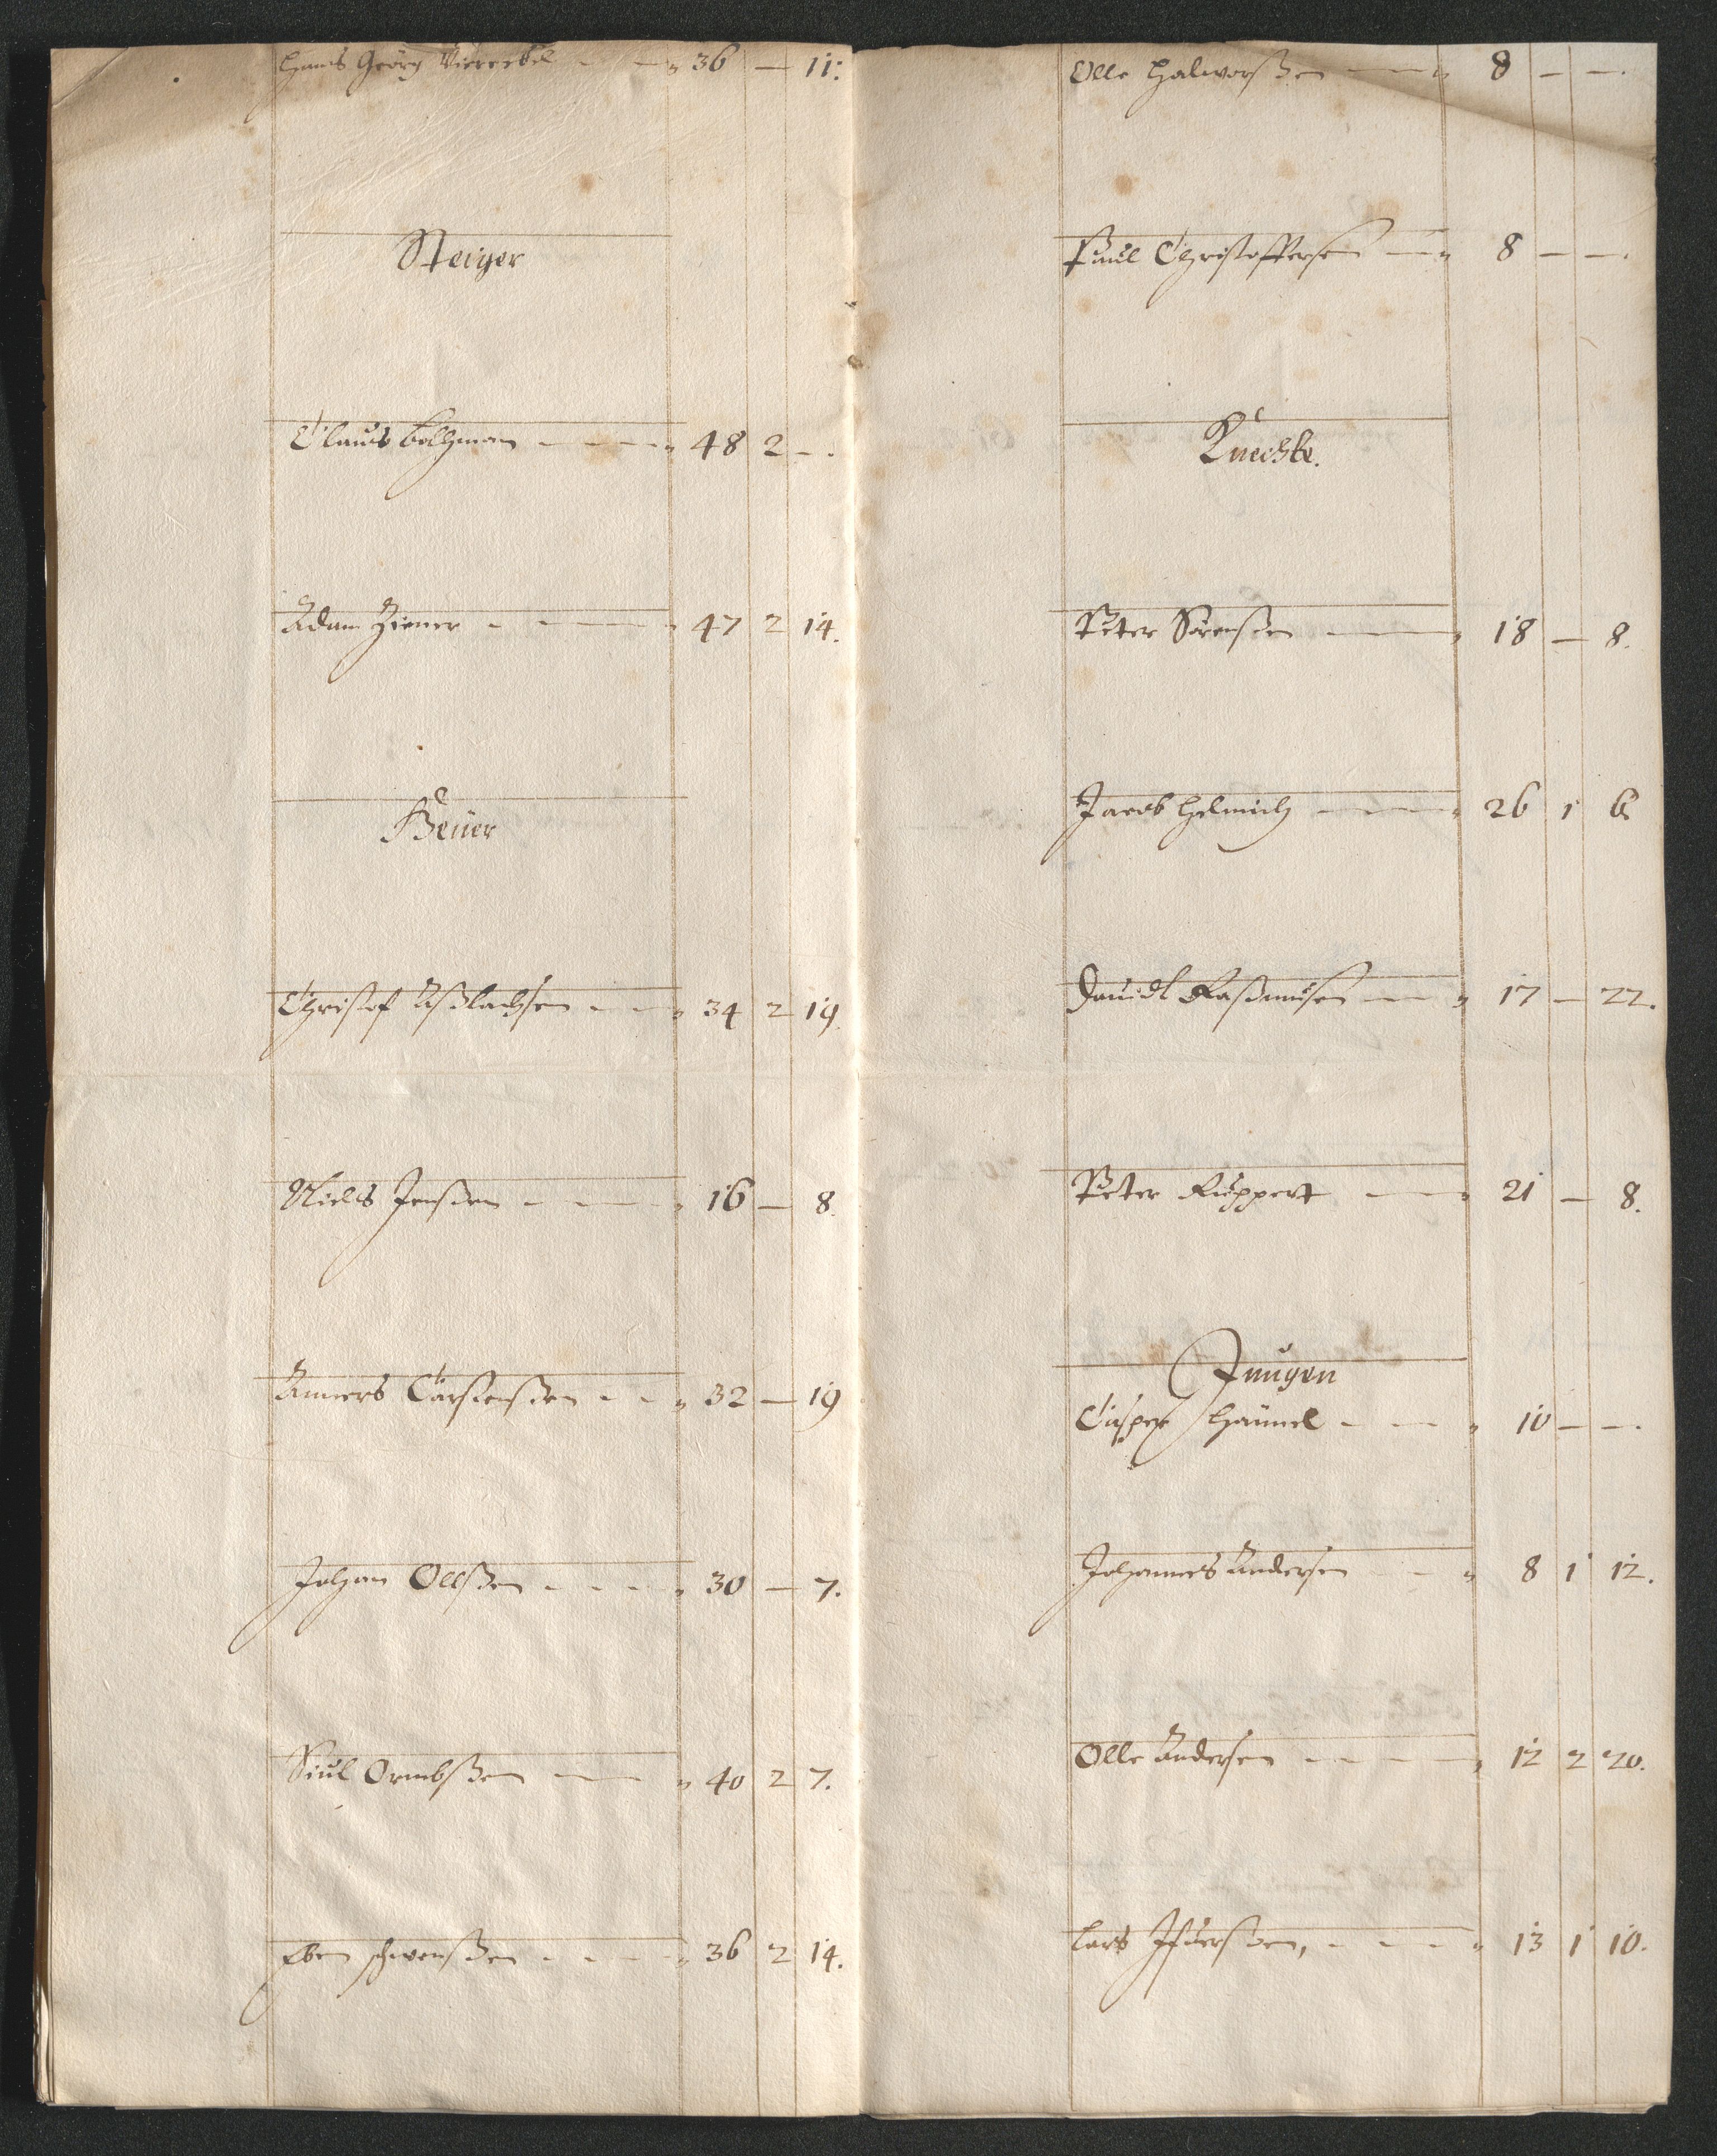 Hans Georg Viereckel - - " 36 — 11:
Steiger
Claus Bollman - - - - " 48 2 -.
Adam Ziener - - - " 47 2 14.
Heüer
Christof Aßlachsen - - " 34 2 19
Niels Jenßen - - - " 16 — 8.
Anners Carstenßen - - " 32 — 19
Johan Ollßen - - - - " 30 — 7.
Siul Ormbßen - - " 40 2 7.
Eben schwenßen - - - " 36 2 14.
Olle Halworßen - - " 8 — —.
Paul Christoffersen - " 8 — —.
Knechte.
Peter Sörenßen - - " 18 — 8.
Jacob Helmich - - - " 26 1 6
Dauidt Raßmusen - - " 17 — 22.
Peter Ruppert - - " 21 — 8.
Jungen
Casper Hammel - - - " 10 — —.
Johannes Andersen - - " 8 1 12.
Olle Andersen - - - - " 12 2 20.
Lars Ifuerßen, - - - " 13 1 10.